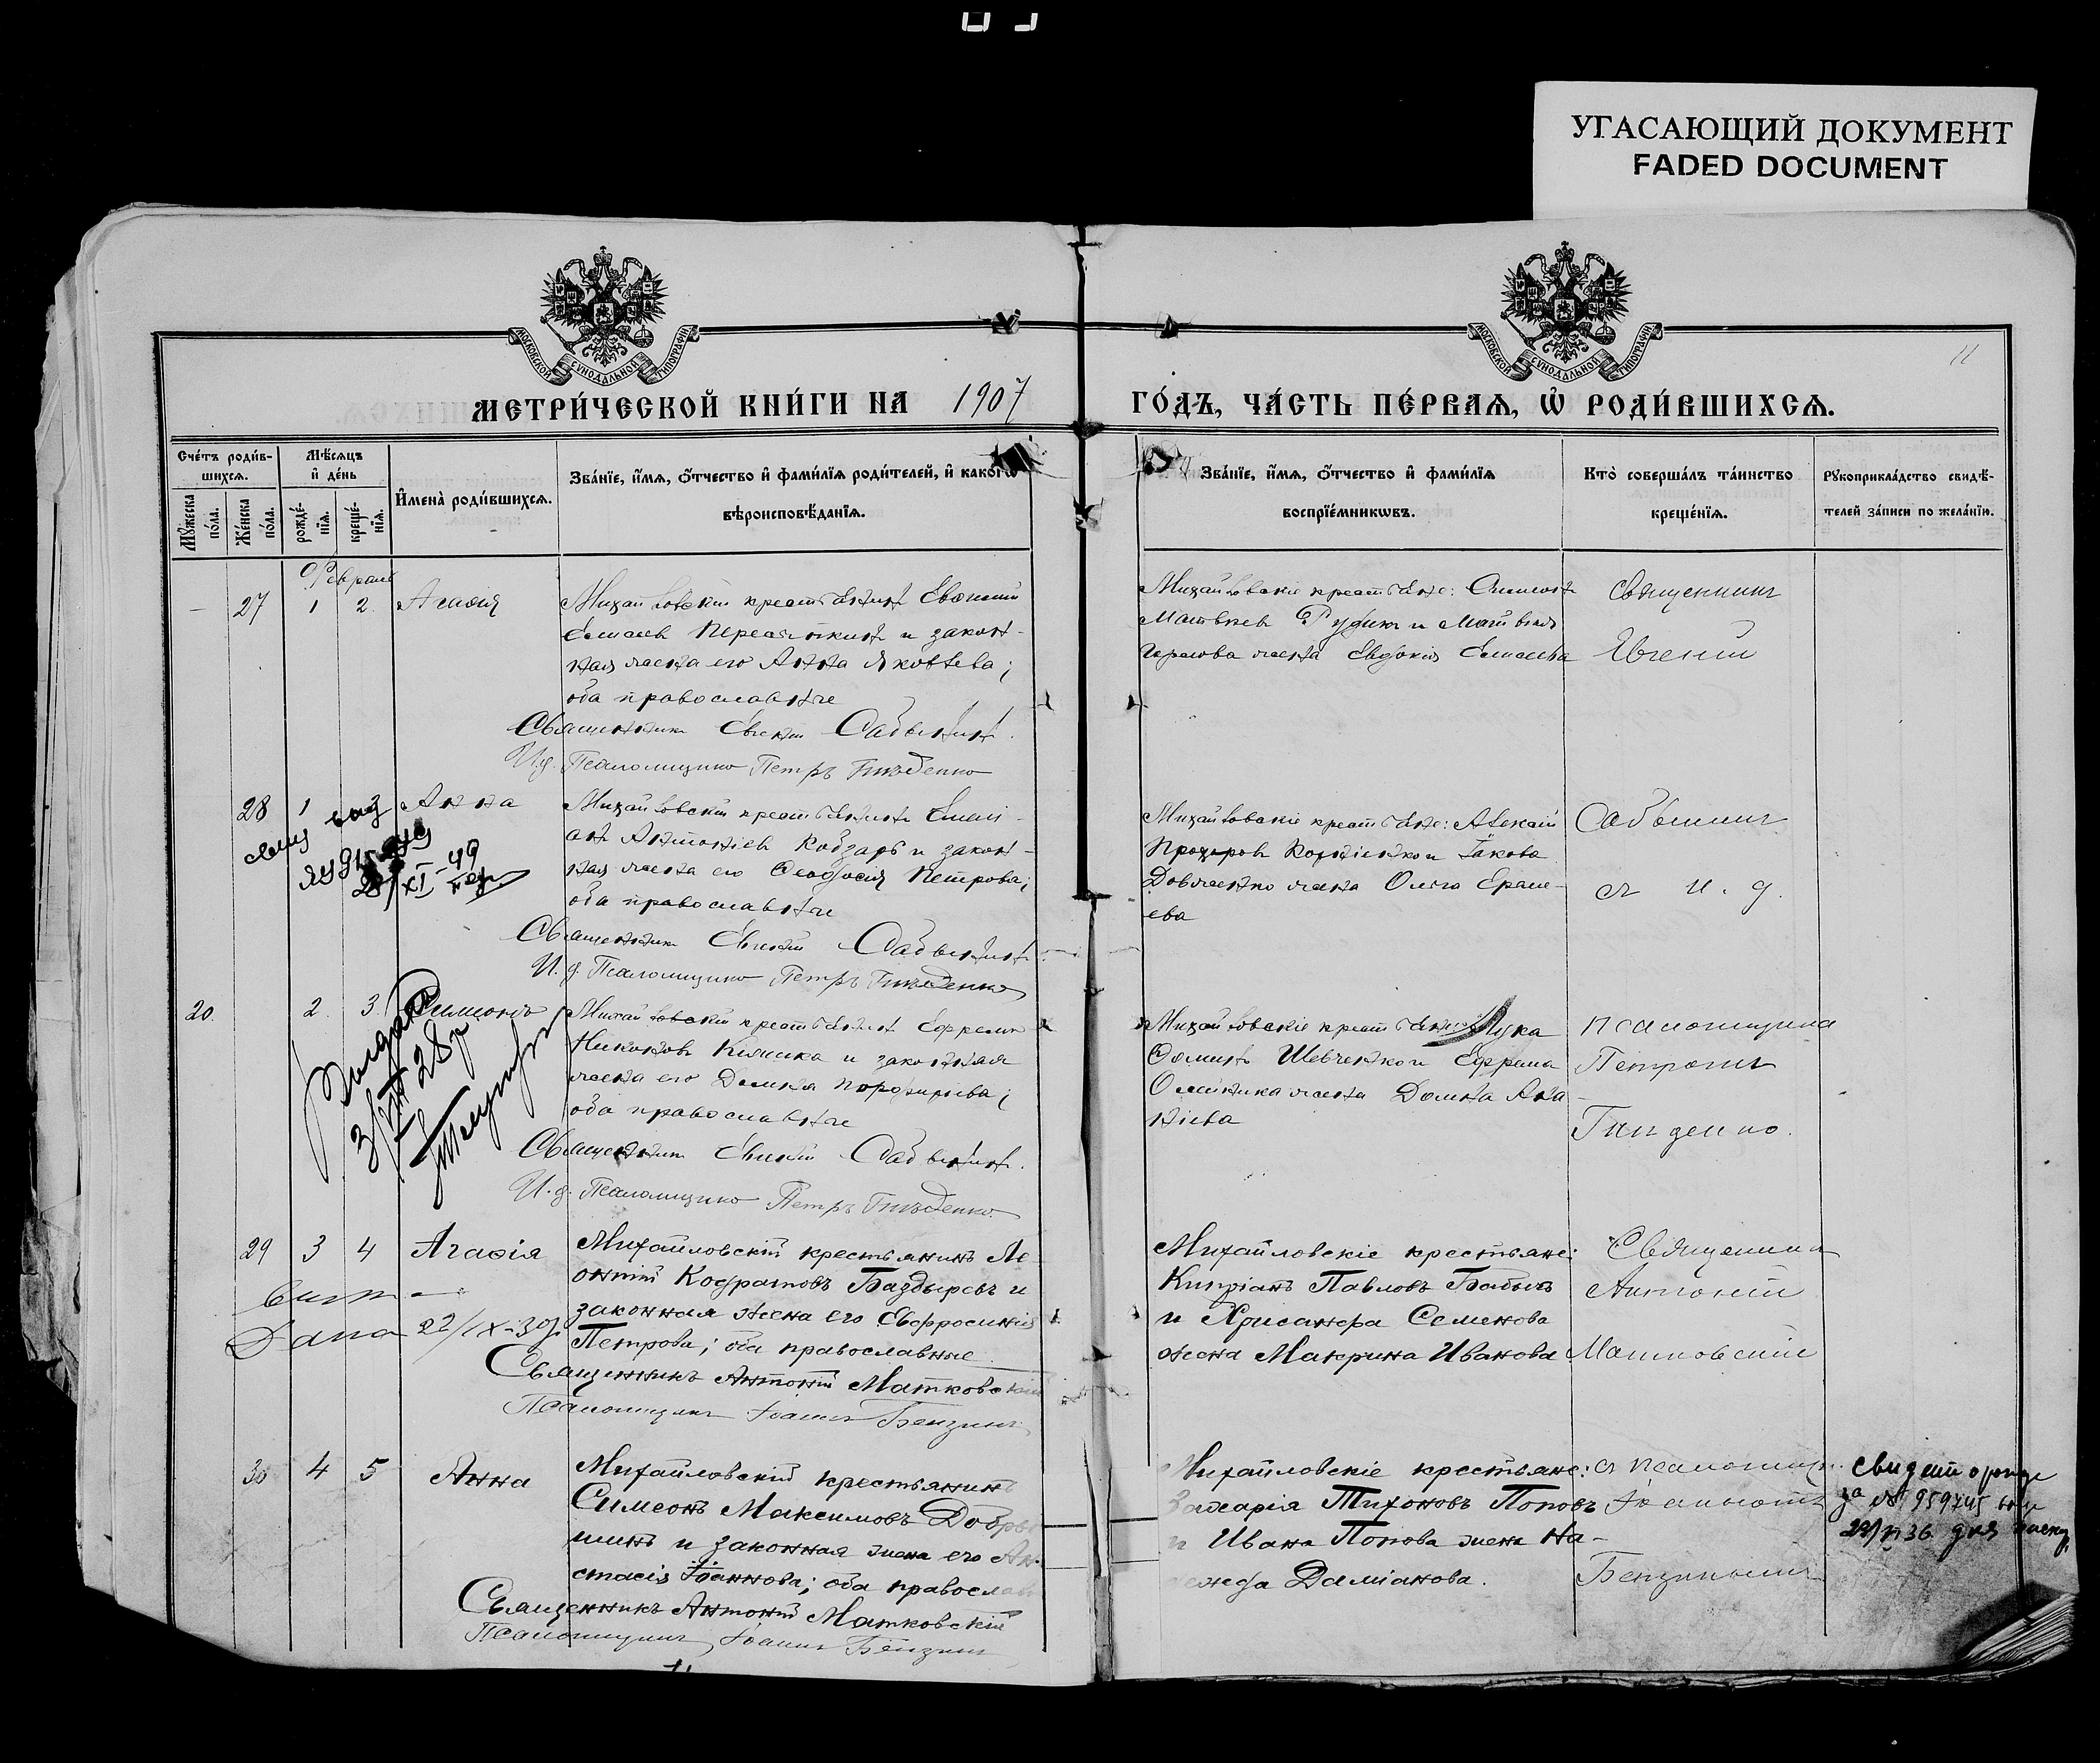 УГАСАЮЩИЙ ДОКУМЕНТ
FADED DOCUMENT
МОСКОВСКОЙ СѴНОДАЛЬНОЙ ТИПОГРАФІИ
МОСКОВСКОЙ СѴНОДАЛЬНОЙ ТИПОГРАФІИ
11
МЕТРИ́ЧЕСКОЙ КНИ́ГИ НА 1907 ГО́ДЪ, ЧА́СТЬ ПЕ́РВАѦ, Ѡ҆ РОДИ́ВШИХСѦ.
Сче́тъ роди́в-
шихсѧ.
Мꙋ́жеска по́ла.
Же́нска по́ла.
Мѣ́сѧцъ
и҆ де́нь
рожде́-
нїѧ.
креще́-
нїѧ.
И҆мена̀ роди́вшихсѧ.
Зва́нїе, и҆́мѧ, ѻ҆́тчество и҆ фами́лїѧ роди́телей, и҆ какогѡ
вѣроисповѣ́данїѧ.
Зва́нїе, и҆́мѧ, ѻ҆́тчество и҆ фами́лїѧ
воспрїе́мникѡвъ.
Кто̀ соверша́лъ та́инство
креще́нїѧ.
Рꙋкоприкла́дство свидѣ́-
телей за́писи по жела́нїю.
Февраль
27 1 2 Агафія
Михайловскій крестьянинъ Евѳимій
Елисеевъ и закон-
ная жена его Анна Яковлева;
оба православные
Священникъ Евгеній Савынинъ
И.д. Псаломщика Петръ Гнѣденко
Михайловскіе крестьяне: Симеонъ
Матвѣевъ Рудикъ и Матвѣя
жена Евдокія Елисеева
Священникъ
Евгеній
28 1 Анна
Михайловскій крестьянинъ Емелі-
анъ Антоніевъ Кобзарь и закон-
ная жена его Ѳеодосія Петрова;
оба православные
Священникъ Евгеній Савынинъ
И.д. Псаломщика Петръ Гнѣденко
XI-49
Михайловскіе крестьяне: Алексѣй
Прохоровъ Корніенко и Іакова
Довженко жена Ольга Ереме-
ева
Савынинъ
съ и. д.
20 2 3 Симеонъ
Михайловскій крестьянинъ Ефремъ
Никоновъ и законная
жена его Домна Порфирьева;
оба православные
Священникъ Евгеній Савынинъ
И.д. Псаломщика Петръ Гнѣденко
Выдана
28 г
Михайловскіе крестьяне: Лука
Ѳоминъ Шевченко и Ефрема
Олейника жена Домна Ана-
ніева
псаломщика
Петромъ
Гнѣденко.
29 3 4 Агафія
Михайловскій крестьянинъ Ле-
онтій Кодратовъ Баздыревъ и
законная жена его Евфросинія
Петрова; оба православные
Священникъ Антоній Матковскій
Псаломщикъ Іоаннъ Бензинъ
Дана 22/IX-30г.
Михайловскіе крестьяне:
Кипріанъ Павловъ Бабычъ
и Хрисанфа Семенова
жена Макрина Иванова
Священникъ
Антоній
Матковскій
30 4 5 Анна
Михайловскій крестьянинъ
Симеонъ Максимовъ Добры
шинъ и законная жена его Ан
стасія Іоаннова; оба православ
Священникъ Антоній Матковскій
Псаломщикъ Іоаннъ Бензинъ
Михайловскіе крестьяне:
Захарія Тихоновъ Поповъ
и Ивана Попова жена На-
дежда Даміанова.
съ псаломщик.
Іоанномъ
Бензинымъ
свидет о рожде
за № 959745
36 для